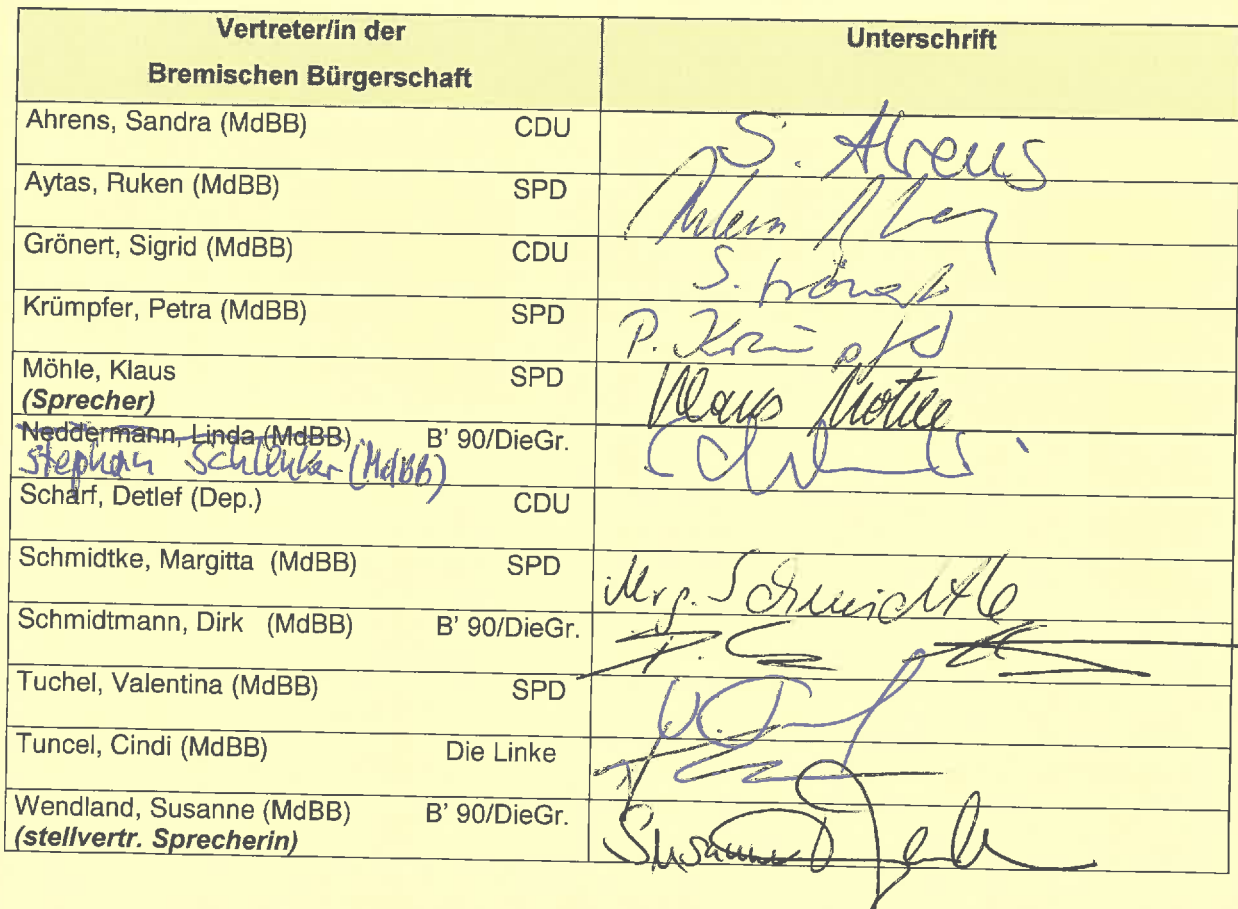 Vertreter/in der Unterschrift
Bremischen Bürgerschaft
Ahrens, Sandra (MdBB) CDU S. Ahrens
Aytas, Ruken (MdBB) SPD
Grönert, Sigrid (MdBB) CDU S. Grönert
Krümpfer, Petra (MdBB) SPD P. Krümpfer
Möhle, Klaus SPD Klaus Möhle
(Sprecher)
Neddermann, Linda (MdBB) B' 90/DieGr.
Stephan Schlenker (MdBB)
Scharf, Detlef (Dep.) CDU
Schmidtke, Margitta (MdBB) SPD Mrg. Schmidtke
Schmidtmann, Dirk (MdBB) B' 90/DieGr.
Tuchel, Valentina (MdBB) SPD
Tuncel, Cindi (MdBB) Die Linke
Wendland, Susanne (MdBB) B' 90/DieGr. Susanne
(stellvertr. Sprecherin)